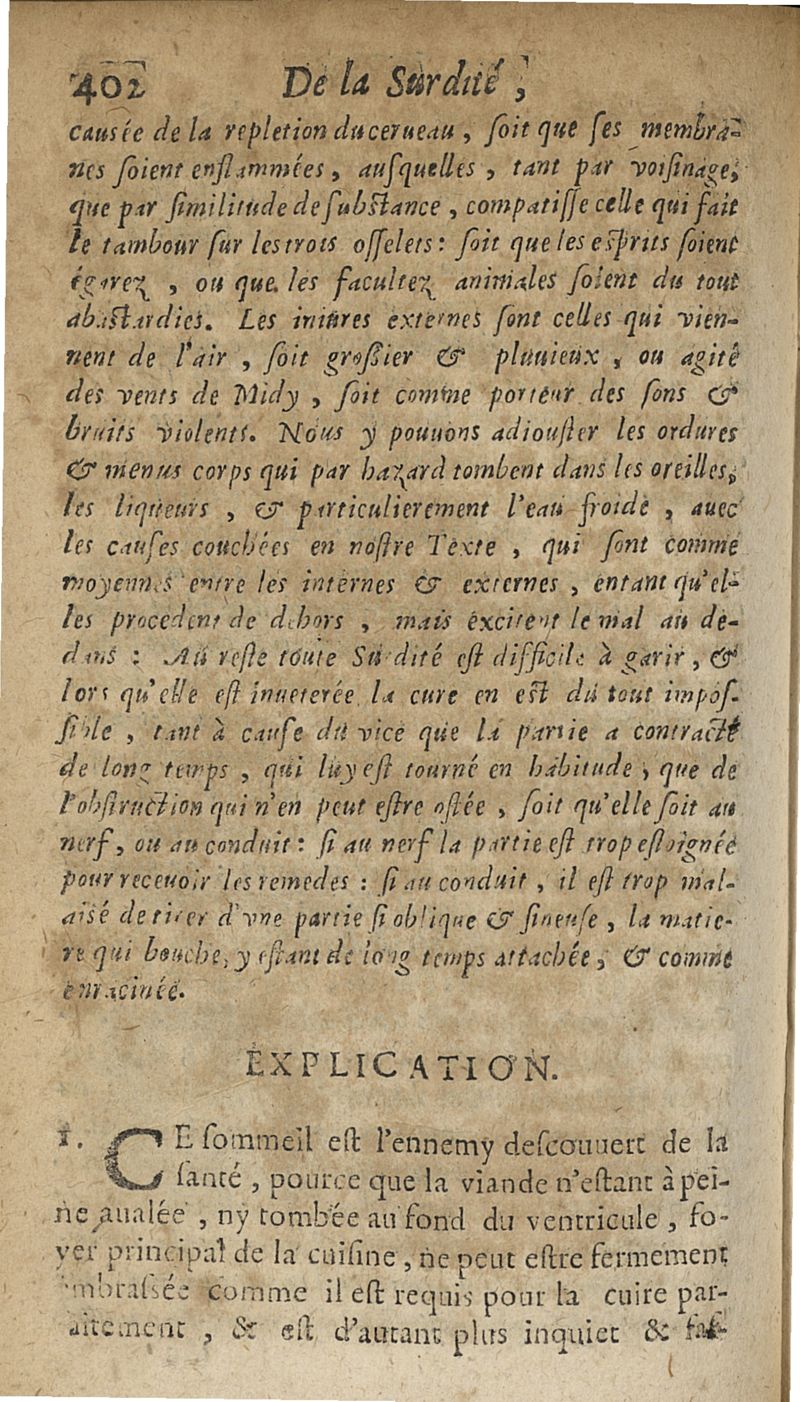 402 De la Surdité,
causée de la repletion du cerueau, soit que ses membra-
nes soient enflammées, ausquelles, tant par voisinage,
que par similitude de substance, compatisse celle qui fait
le tambour sur les trois osselets: soit que les esprits soient
égarez, ou que les facultez animales soient du tout
abastardies. Les iniures externes sont celles qui vien-
nent de l'air, soit grossier & pluuieux, ou agité
des vents de Midy, soit comme porteur des sons &
bruits violents. Nous y pouuons adiouster les ordures
& menus corps qui par hazard tombent dans les oreilles,
les liqueurs, & particulierement l'eau froide, auec
les causes couchées en nostre Texte, qui sont comme
moyennes entre les internes & externes, entant qu'el-
les procedent de dehors, mais excitent le mal au de-
dans: Au reste toute Surdité est difficile à garir, &
lors qu'elle est inueterée la cure en est du tout impos-
sible, tant à cause du vice que la partie a contracté
de long temps, qui luy est tourné en habitude, que de
l'obstruction qui n'en peut estre ostée, soit qu'elle soit au
nerf, ou au conduit: si au nerf la partie est trop esloignée
pour receuoir les remedes: si au conduit, il est trop mal-
aisé de tirer d'vne partie si oblique & sineuse, la matie-
re qui bouche, y estant de long temps attachée, & comme
enracinée.
EXPLICATION.
1. CE sommeil est l'ennemy descouuert de la
santé, pource que la viande n'estant à pei-
ne aualée, ny tombée au fond du ventricule, fo-
yer principal de la cuisine, ne peut estre fermement
embrassée comme il est requis pour la cuire par-
aitement, & est d'autant plus inquiet &